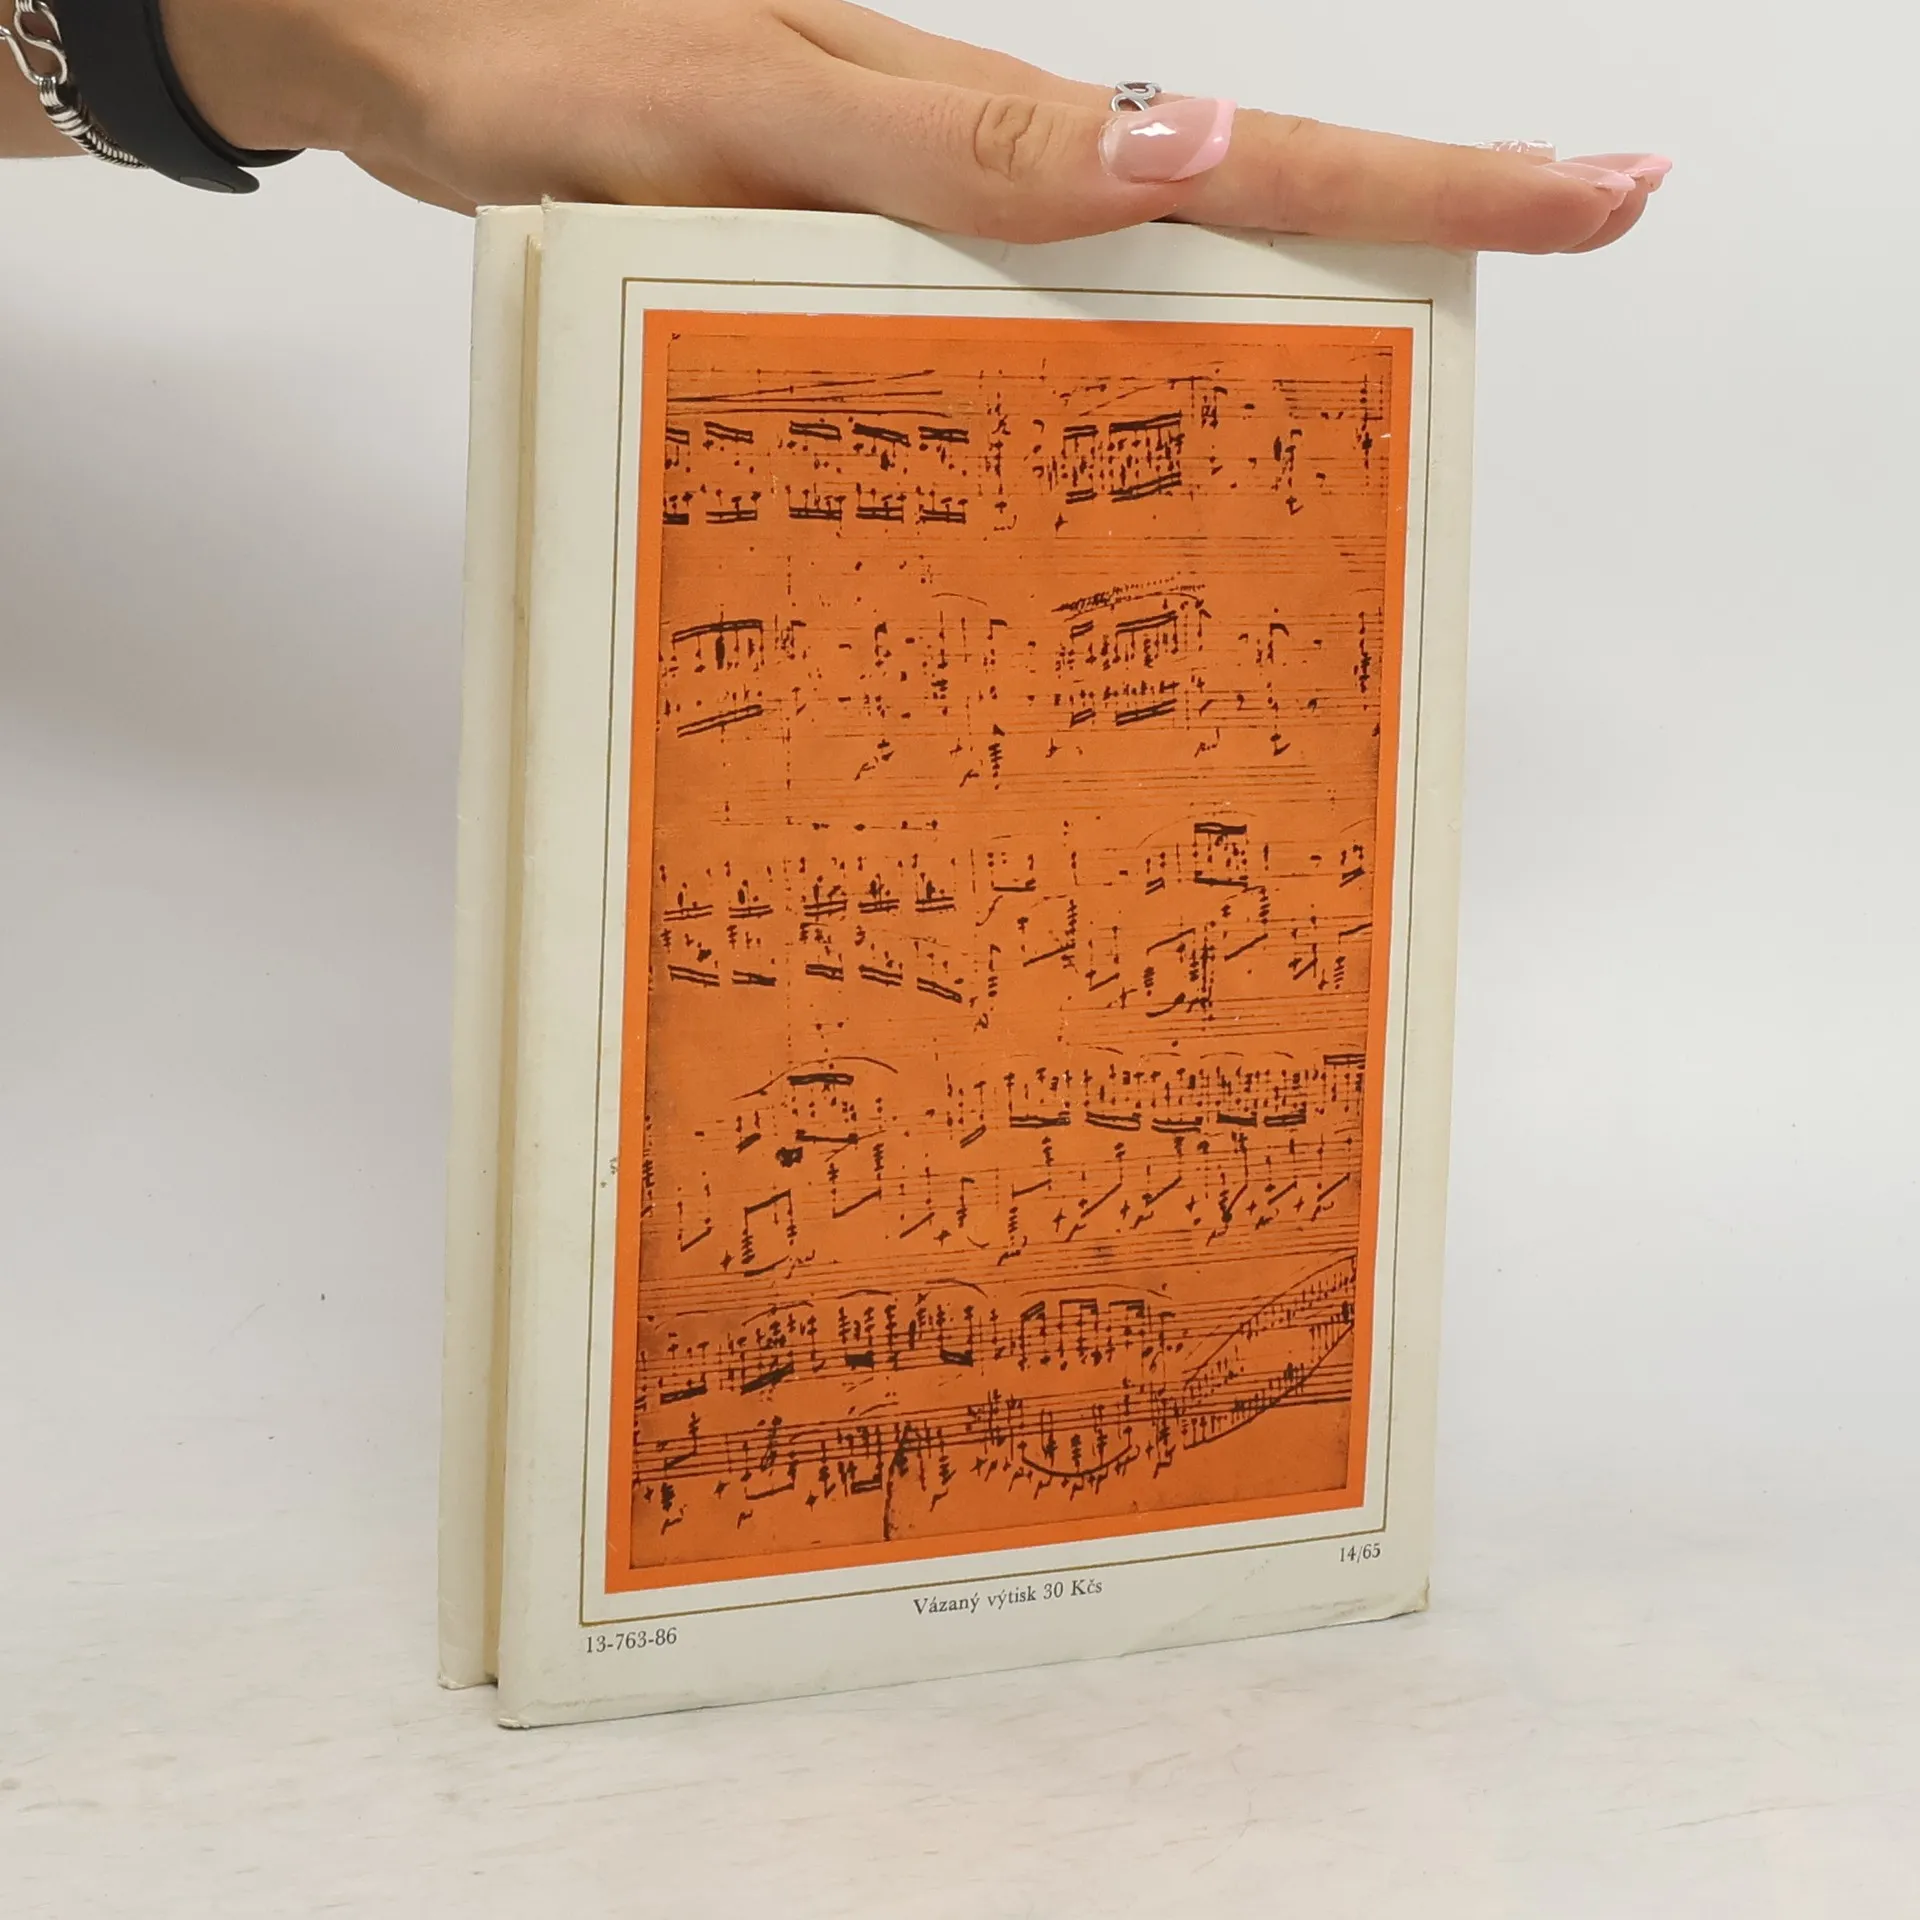 14/65
Vázaný výtisk 30 Kčs
13-763-86